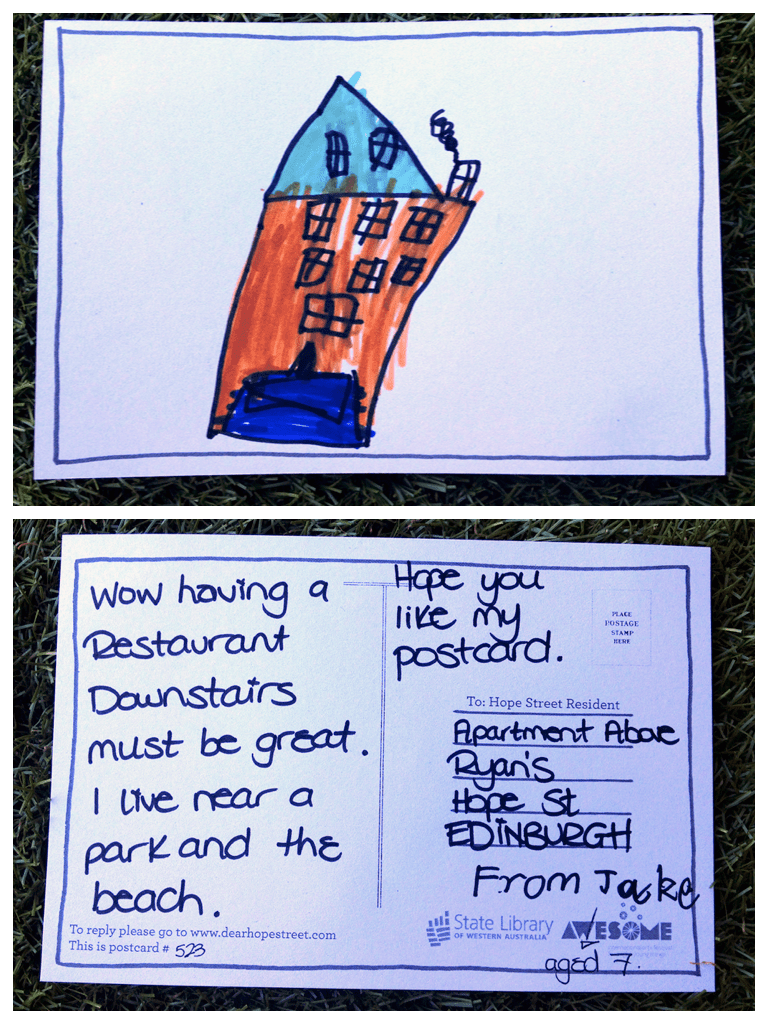 Wow having a
Restaurant
Downstairs
must be great.
I live near a
park and the
beach.
To reply please go to www.dearhopestreet.com
This is postcard # 523
Hope you
like my
postcard.
PLACE
POSTAGE
STAMP
HERE
To: Hope Street Resident
Apartment Above
Ryan's
Hope St
EDINBURGH
From Jake
State Library
OF WESTERN AUSTRALIA
AWESOME
aged 7.